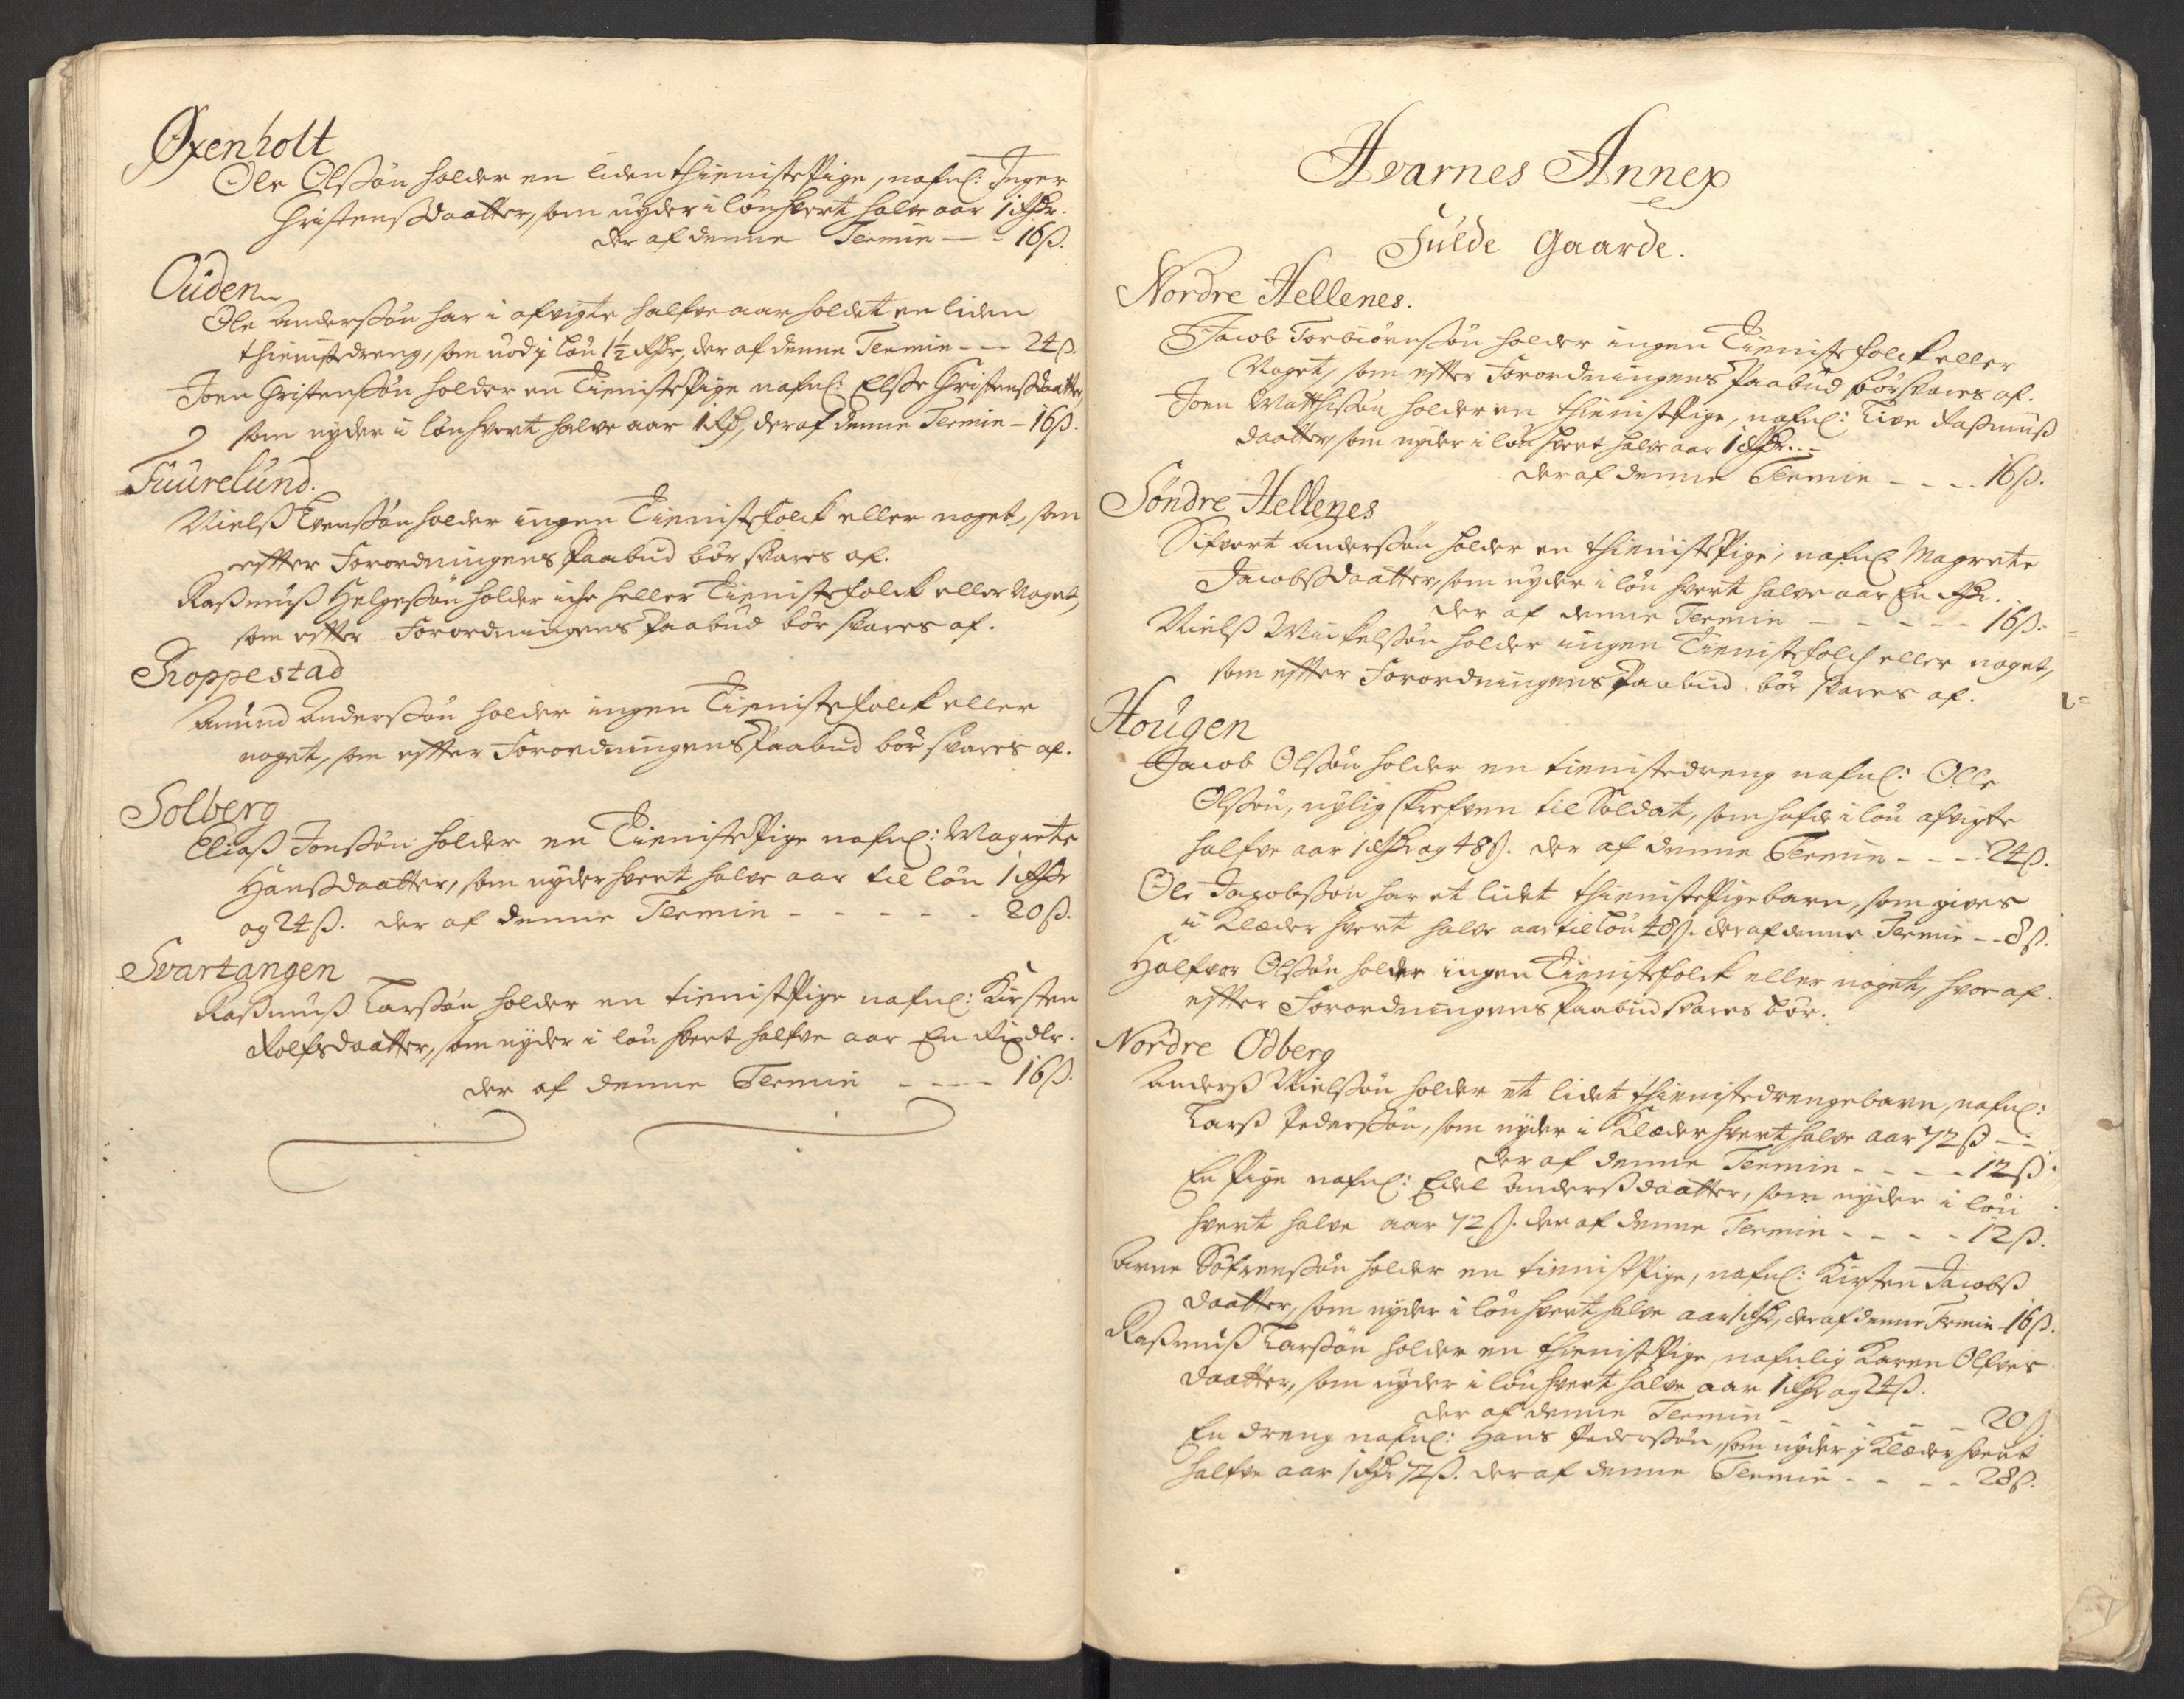 Øxenholt
Ole Olßøn holder en liden thienistePige, nafnl: Inger
Christenßdaatter, som nyder i løn hvert halve aar 1 Rdr.
der af denne Termin — - 16ß.
Ouden
Ole Anderßøn har i afvigte halfve aar holdet en liden
thienistedreng, som nød j løn 1½ Rdr, der af denne Termin - - 24ß.
Joen Christenßøn holder en TienistePige nafnl: Elße Christenßdaatter,
som nyder i løn hvert halve aar 1 Rd, deraf denne Termin - 16ß.
Fuurelund.
Nielß Evenßøn holder ingen Tienistefolck eller noget, som
effter Forordningens Paabud bør svares af.
Raßmuß Helgeßøn holder iche heller Tienistefolck eller Noget,
som effter Forordningens Paabud bør svares af.
Roppestad
Amund Anderßøn holder ingen Tienistefolck eller
noget, som effter Forordningens Paabud bør svares af.
Solberg
Eliaß Jonßøn holder en TienistePige nafnl: Magrete
Hanßdaatter, som nyder hvert halve aar til løn 1 Rdr
og 24ß. der af denne Termin - - - - - 20ß.
Svartangen
Raßmuß Larßøn holder en tienistPige nafnl: Kirsten
Rolfsdaatter, som nyder i løn hvert halfve aar En Rixdlr.
der af denne Termin - - - - 16ß.
Hvarnes Annex
Fulde Gaarde.
Nordre Hellenes.
Jacob Torbiørnßøn holder ingen Tienistefolck eller
Noget, som effter Forordningens Paabud bør svares af.
Joen Matthißøn holder en thienistPige, nafnl: Live Raßmuß
daatter, som nyder i løn hvert halve aar 1 Rdr. -
der af denne Termin - - - - 16ß.
Søndre Hellenes
Sifvert Anderßøn holder en thienistePige, nafnl Magrete
Jacobßdaatter, som nyder i løn hvert halve aar En Rdr.
der af denne Termin - - - - - 16ß.
Nielß Mickelßøn holder ingen Tienistefolch eller noget,
som effter Forordningens Paabud bør svares af.
Hougen
Jacob Olßøn holder en tienistedreng nafnl: Olle
Olßøn, nylig skrefven til Soldat, som hafde i løn afvigte
halfve aar 1 Rdr og 48ß. der af denne Termin - - - 24ß.
Ole Jacobßøn har et lidet thienistePigebarn, som gives
i Klæder hvert halve aar til løn 48ß. der af denne Termin - - 8ß.
Halfvor Olßøn holder ingen Tienistefolck eller noget, hvor af
effter Forordningens Paabud svares bør.
Nordre Odberg
Anderß Nielßøn holder et lidet thienistedrengebarn, nafnl:
Larß Pederßøn, som nyder i Klæder hvert halve aar 72ß -
der af denne Termin - - - - 12ß.
En Pige nafnl: Edel Anderßdaatter, som nyder i løn
hvert halve aar 72ß. der af denne Termin - - - - 12ß.
Arne Søfrenßøn holder en tienistPige, nafnl: Kirsten Jacobß
daatter, som nyder i løn hvert halve aar 1 Rdr, der af denne Termin - 16ß.
Raßmuß Larßøn holder en thienistPige, nafnlig Karen Olfves
daatter, som nyder i løn hvert halve aar 1 Rdr og 24ß.
der af denne Termin - - - - - 20ß.
En dreng nafnl: Hans Pederßøn, som nyder j Klæder hvert
halfve aar 1 Rdr 72ß. der af denne Termin - - - - 28ß.